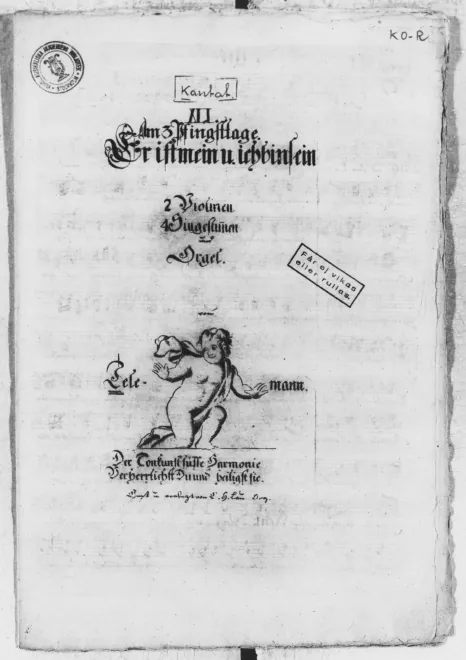 KO-R
Kantat.
XII
Am 3 Pfingsttage.
Er ist mein u. ich bin sein
2 Violinen
4 Singestimen
und
Orgel.
Får ej vikas
eller rullas.
von
Tele- mann.
Der Tonkunst süsse Harmonie
Verherrlichst Du und heiligst sie.